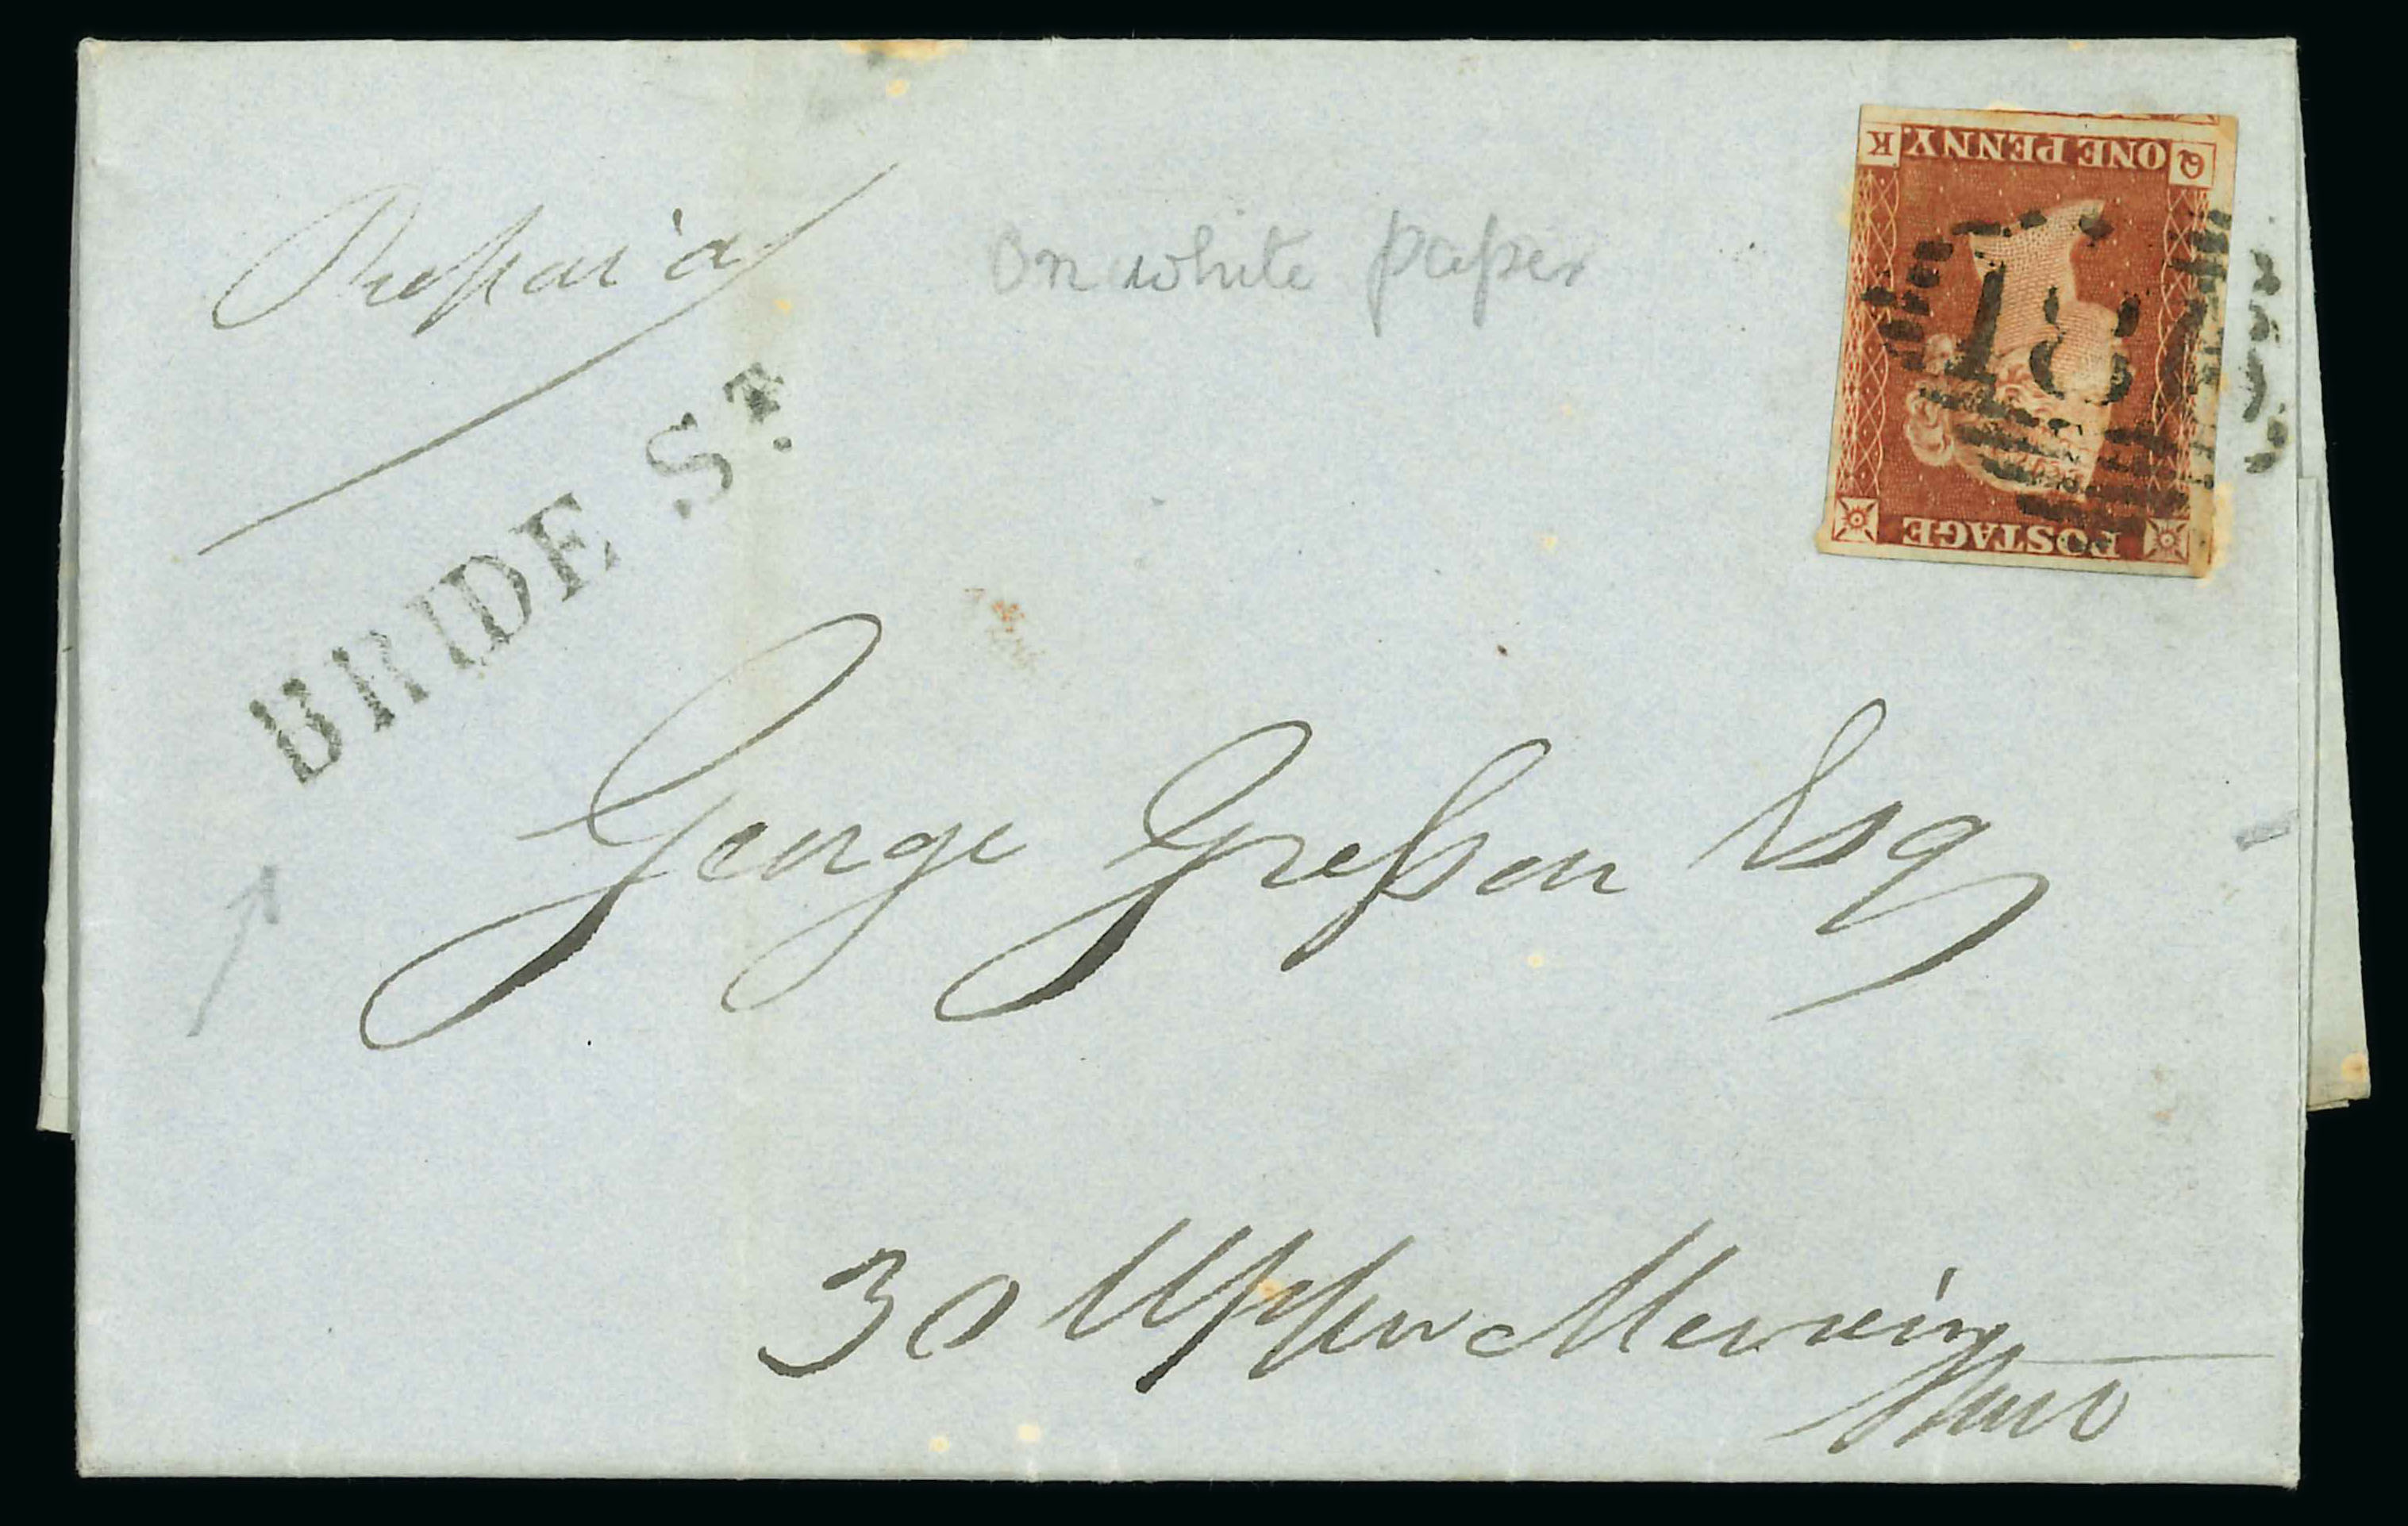 Prepaid
On white paper
BRIDE St.
K ONE PENNY. Q
18
POSTAGE
George Gresson Esq
30 Upper Merrion